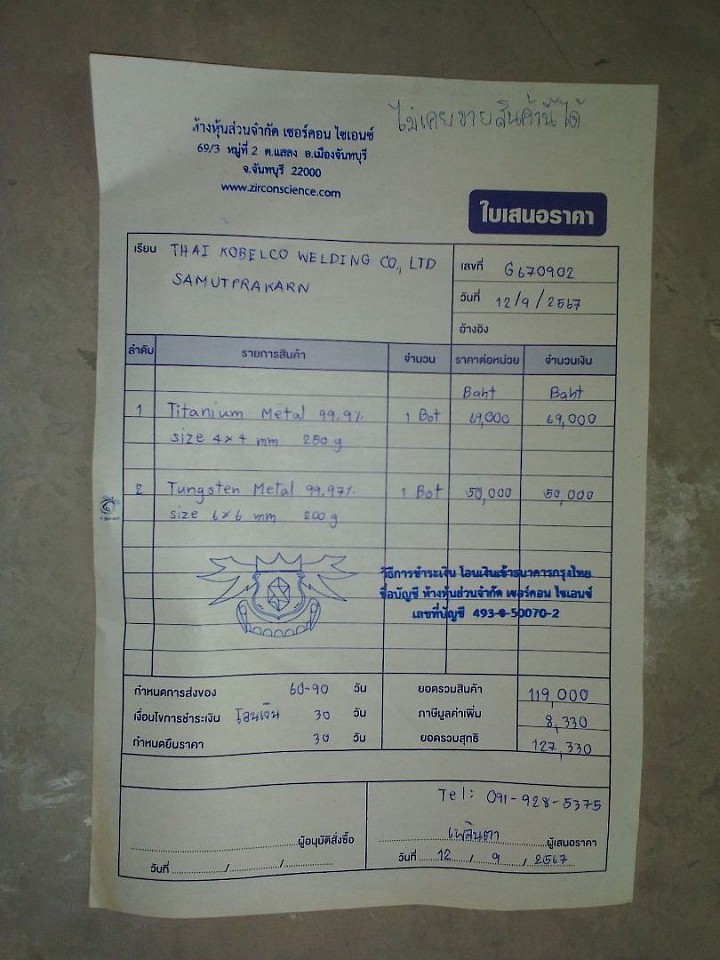 ไม่เคยขายสินค้านี้ได้
ห้างหุ้นส่วนจำกัด เซอร์คอน ไซเอนซ์
69/3 หมู่ที่ 2 ต.แสลง อ.เมืองจันทบุรี
จ.จันทบุรี 22000
www.zirconscience.com
ใบเสนอราคา
เรียน THAI KOBELCO WELDING CO., LTD
SAMUTPRAKARN
เลขที่ G670902
วันที่ 12/9/2567
อ้างอิง
ลำดับ รายการสินค้า จำนวน ราคาต่อหน่วย จำนวนเงิน
Baht Baht
1 Titanium Metal 99.9% 1 Bot 69,000 69,000
size 4x4 mm 250 g
2 Tungsten Metal 99.97% 1 Bot 50,000 50,000
size 6x6 mm 200 g
วิธีการชำระเงิน โอนเงินเข้าธนาคารกรุงไทย
ชื่อบัญชี ห้างหุ้นส่วนจำกัด เซอร์คอน ไซเอนซ์
เลขที่บัญชี 493-0-50070-2
กำหนดการส่งของ 60-90 วัน ยอดรวมสินค้า 119,000
เงื่อนไขการชำระเงิน โอนเงิน 30 วัน ภาษีมูลค่าเพิ่ม 8,330
กำหนดยืนราคา 30 วัน ยอดรวมสุทธิ 127,330
Tel: 091-928-5375
ผู้อนุมัติสั่งซื้อ
วันที่ ............/............/............
เพลินตา ผู้เสนอราคา
วันที่ 12 / 9 / 2567